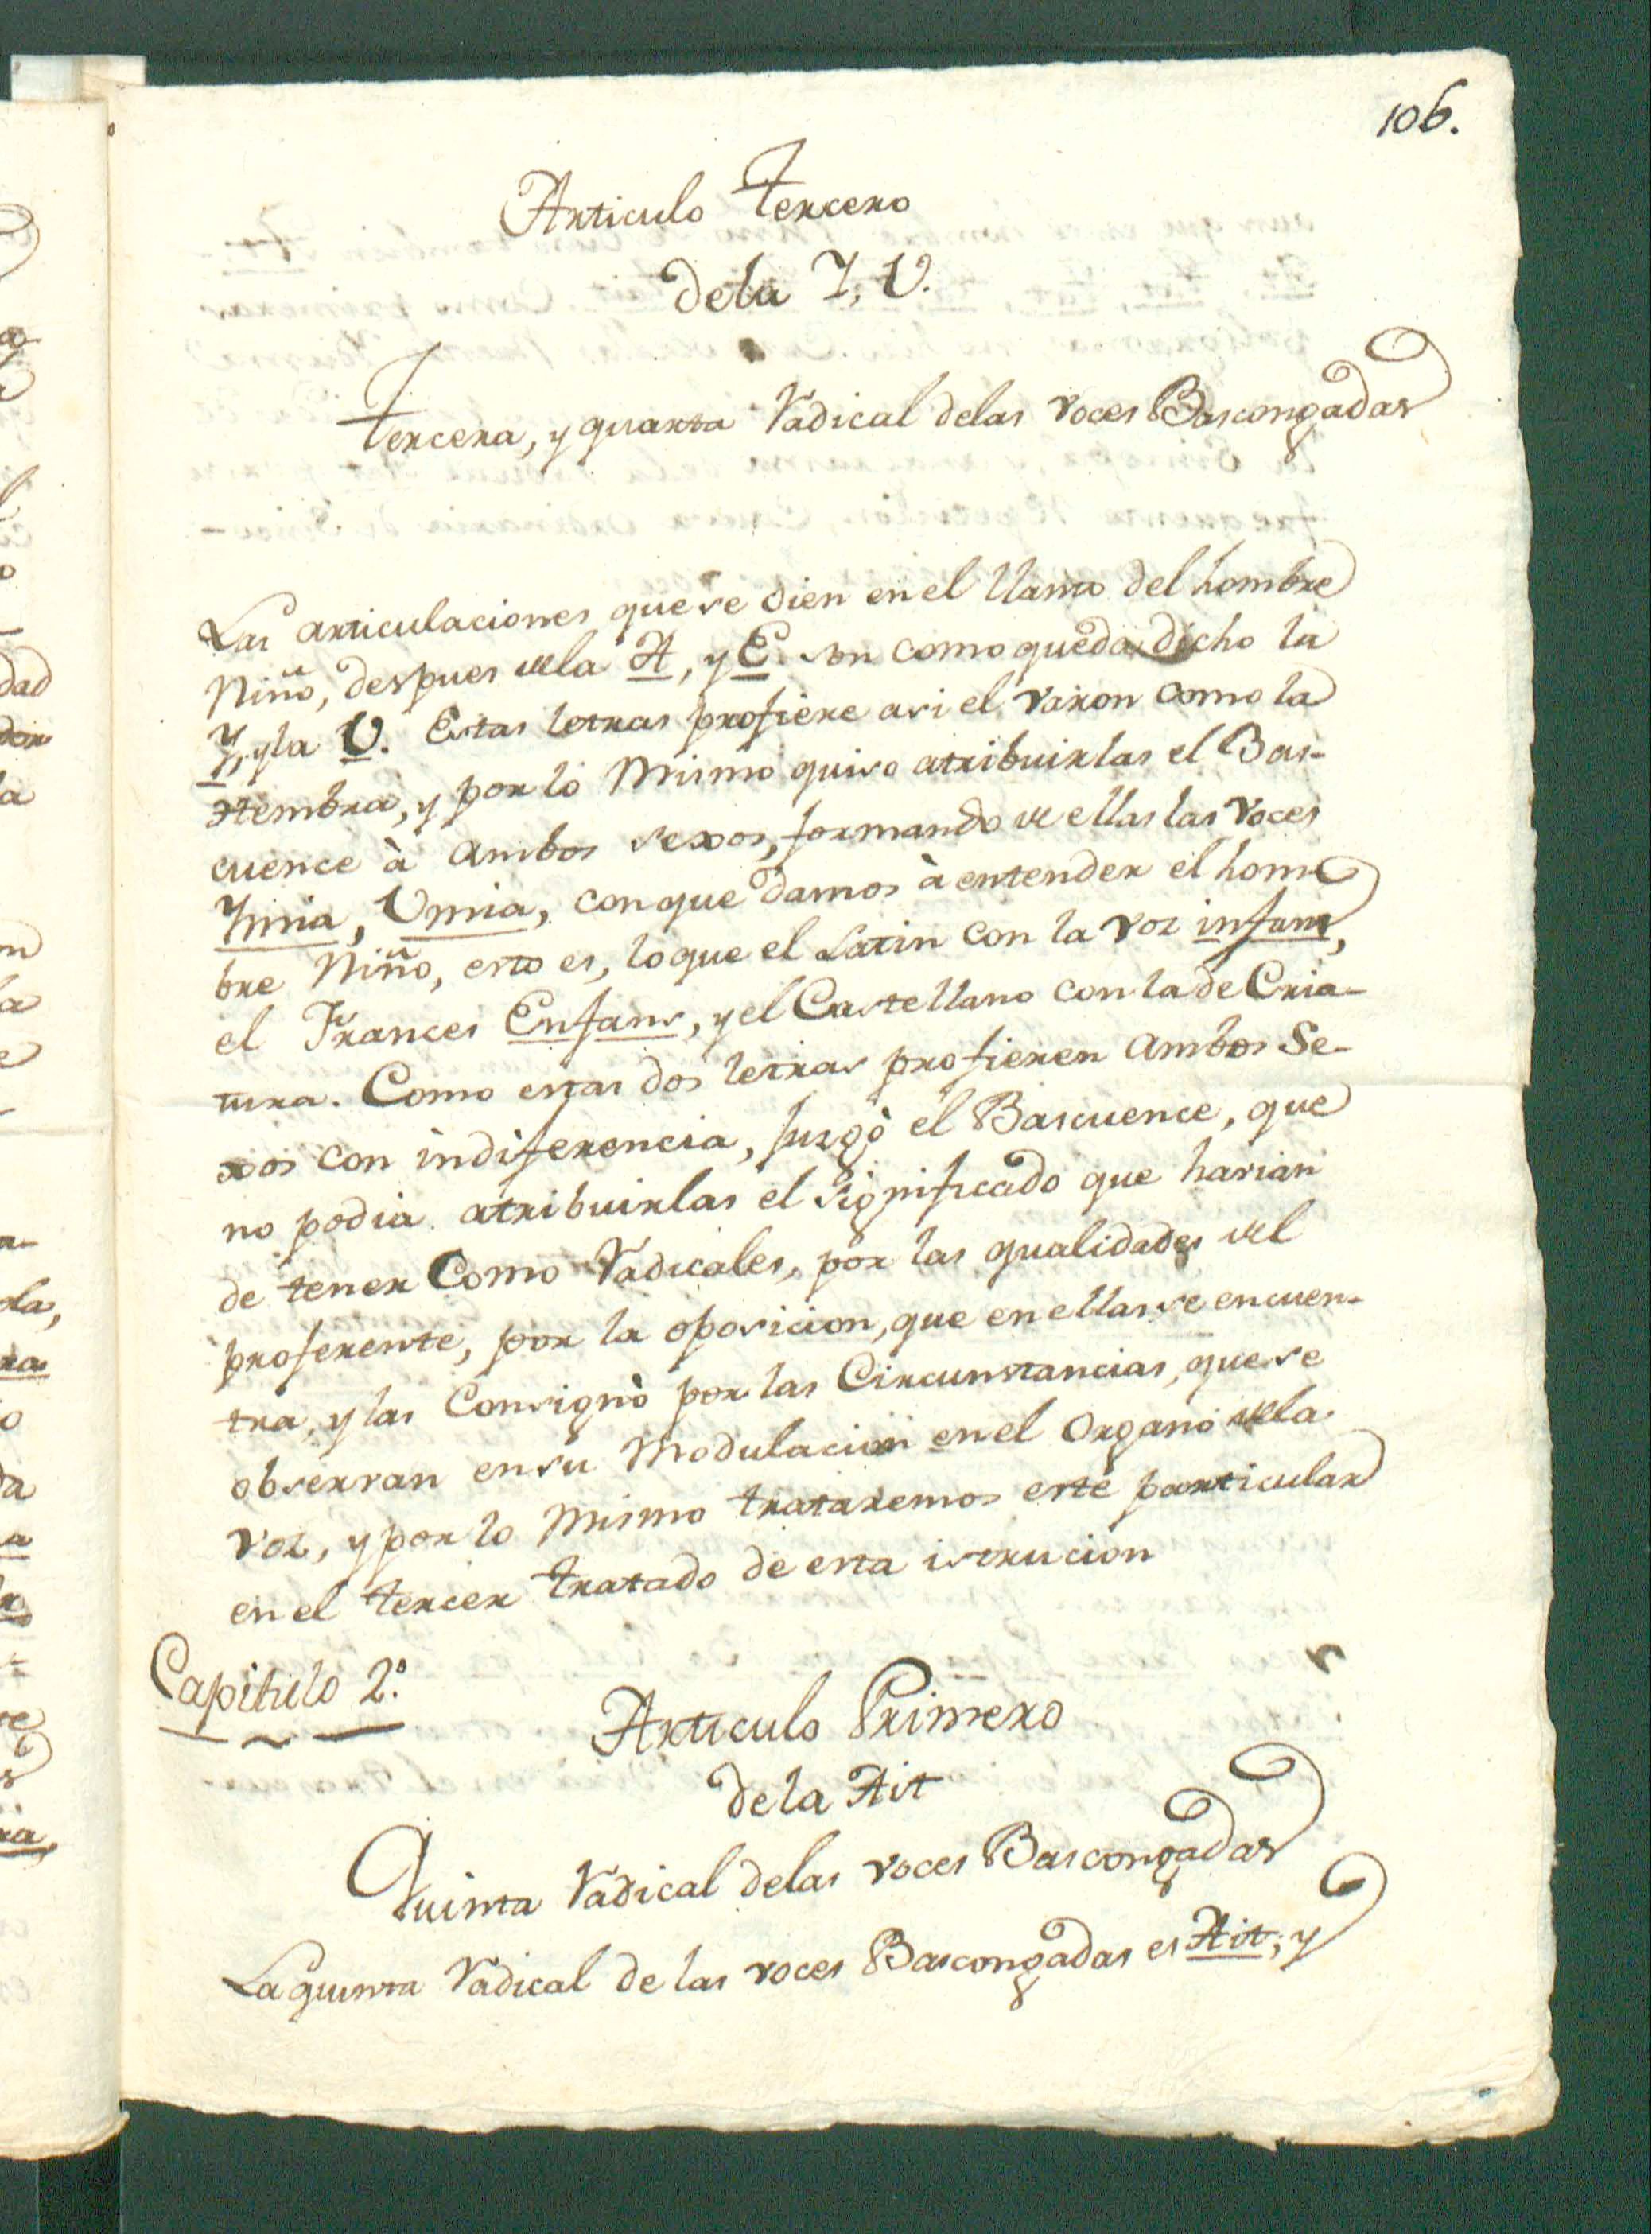 106.
Articulo Tercero
dela Y, V.
Tercera, y quarta Radical delas voces Bascongadas
Las articulaciones que se oien en el llanto del hombre
Niño, despues dela A, y E. son como queda dicho la
Y, y la V. Estas letras profiere asi el varon como la
Hembra, y por lo mismo quiso atribuirlas el Bas-
cuence à ambos sexos, formando de ellas las voces
Ynnia, Vmia, con que damos à entender el hom-
bre Niño, esto es, lo que el Latin con la voz infans,
el Frances Enfans, y el Castellano con la de Cria-
tura. Como estas dos letras profieren ambos Se-
xos con indiferencia, Juzgò el Bascuence, que
no podia atribuirlas el significado que harian
de tener Como Radicales, por las qualidades del
proferente, por la oposicion, que en ellas se encuen-
tra, y las Consignò por las Circunstancias, que se
observan en su Modulacion en el Organo dela
voz, y por lo mismo trataremos este particular
en el tercer tratado de esta istrucion
Capitulo 2.º
Articulo Primero
de la Ait
Quinta Radical delas voces Bascongadas
La quinta Radical de las voces Bascongadas es Ait; y